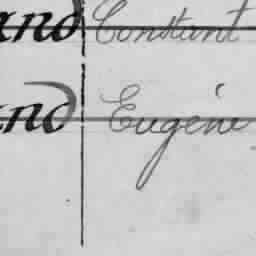 and Constant
and Eugène